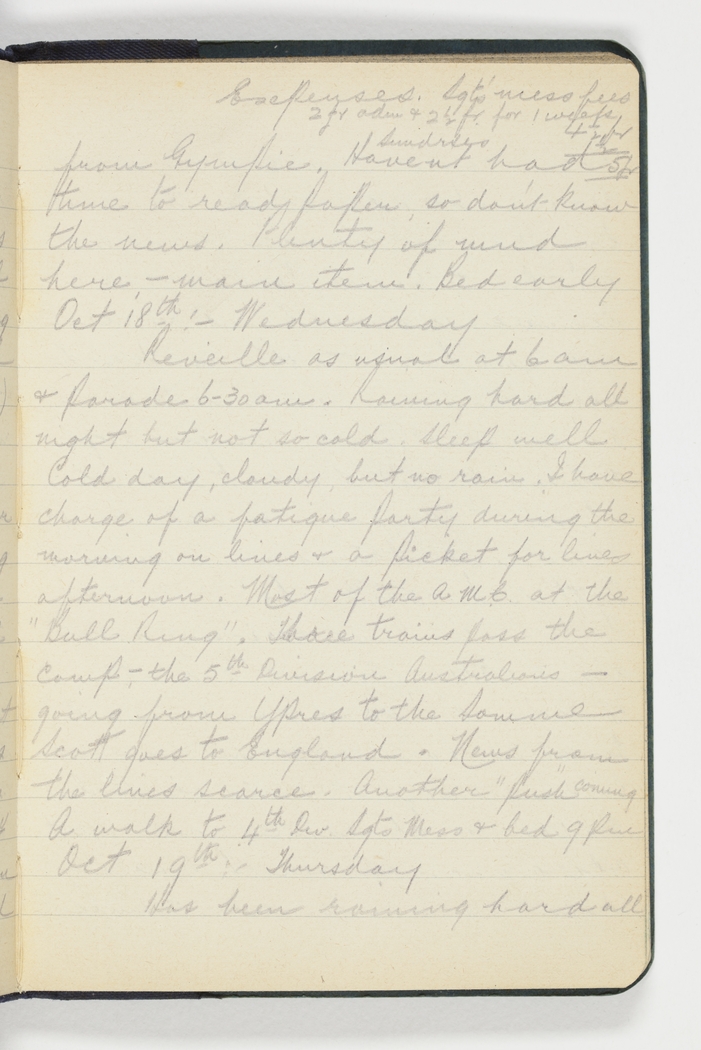 Expenses. Sgts' mess fees
2 fr adm & 2½ fr. for 1 week
4½ fr
Sundries ½
5 fr
from Gympie. Havent had
time to read paper, so don't know
the news. Plenty of mud
here – main item. Bed early
Oct 18th :- Wednesday
Reveille as usual at 6 am
& Parade 6-30 am. Raining hard all
night but not so cold. Sleep well
Cold day, cloudy, but no rain. I have
charge of a fatigue party during the
morning on lines & a picket for lines
afternoon. Most of the A.M.C. at the
"Bull Ring". Three trains pass the
camp – the 5th Division Australians –
going from Ypres to the Somme
Scott goes to England. News from
the lines scarce. Another "push" coming
A walk to 4th Div. Sgts Mess & bed 9 pm
Oct 19th :- Thursday
Has been raining hard all